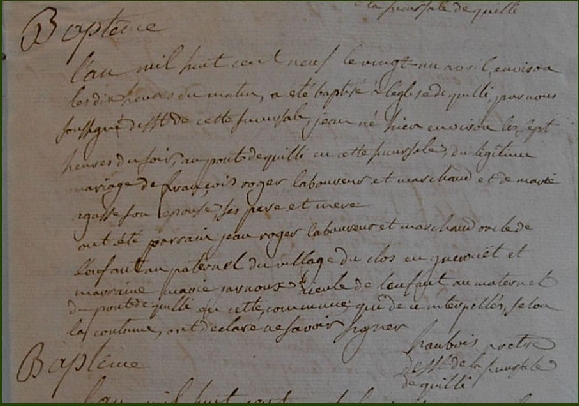 à la succursale de quilli
Bapteme
l'an mil huit cent neuf le vingt un avril, environ
les dix heures du matin, a été baptisé à l'eglise de quilli, par nous
soussigné desst de cette succursale, jean né hier environ les sept
heures du soir, au pont de quilli en cette succursale, du légitime
mariage de françois roger laboureur et marchand et de marie
son epouse, ses pere et mere
ont été parrain jean roger laboureur et marchand oncle de
l'enfant au paternel du village du clos en guenuët et
marraine marie ayeule de l'enfant au maternel
du pont de quilli en cette commune, qui de ce interpellés, selon
la coutume, ont déclaré ne savoir signer
prêtre
desst de la succursale
de quilli
Bapteme
l'an mil huit cent